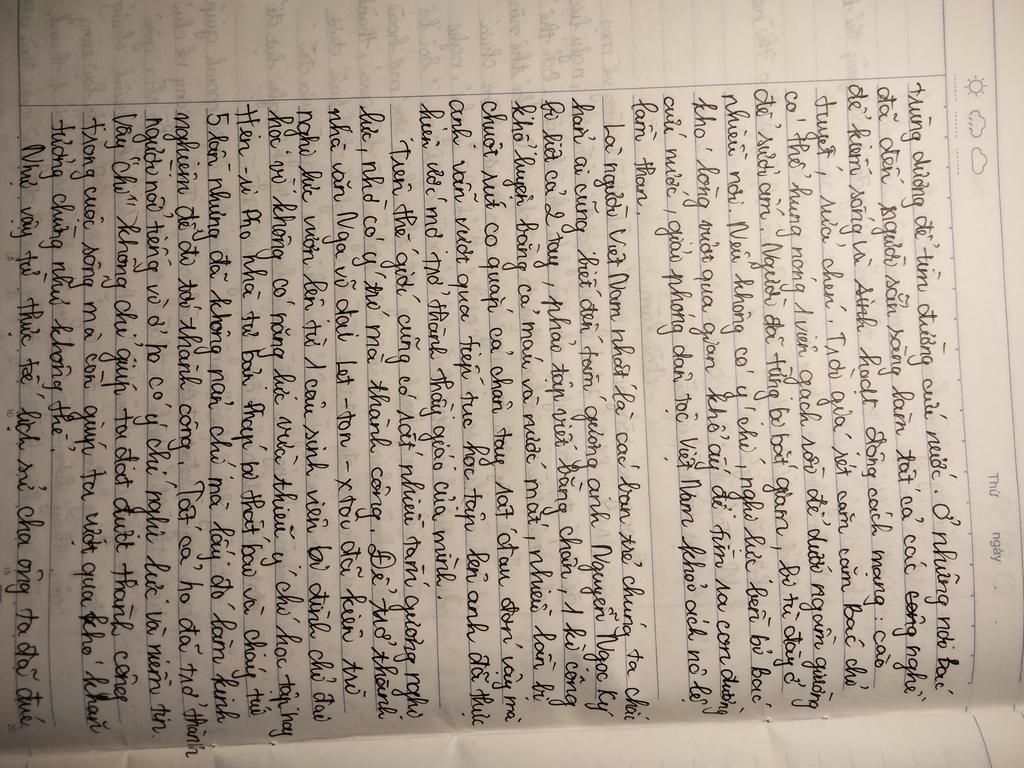 Thứ ngày
trùng dương để tìm đường cứu nước. Ở những nơi Bác
đã đến người sẵn sàng làm tất cả các công nghề
để kiếm sống và sinh hoạt động cách mạng: cào
tuyết, rửa chén. Trời giá rét căm căm Bác chỉ
có thể hung nóng 1 viên gạch rồi để dưới ngầm giường
để sưởi ấm. Người đã từng bị bắt giam, bị tù đày ở
nhiều nơi. Nếu không có ý chí, nghị lực bền bỉ Bác
khó lòng vượt qua gian khổ ấy để tìm ra con đường
cứu nước, giải phóng dân tộc Việt Nam khỏi ách nô lệ
lầm than.
Là người Việt Nam nhất là các bạn trẻ chúng ta chắc
hẳn ai cũng biết đến tấm gương anh Nguyễn Ngọc Ký
bị liệt cả 2 tay, phải tập viết bằng chân, 1 kì công
khổ luyện bằng cả máu và nước mắt, nhiều lần bị
chuột rút co quắp cả chân tay rất đau đớn vậy mà
anh vẫn vượt qua tiếp tục học tập lên anh đã thực
hiện ước mơ trở thành thầy giáo của mình.
Trên thế giới cũng có rất nhiều tấm gương nghị
lực, nhờ có ý trí mà thành công. Để trở thành
nhà văn Nga vĩ đại Lep-ton-xtôi đã kiên trì
nghị lực vươn lên từ 1 cậu sinh viên bị đình chỉ đại
học vì không có năng lực vừa thiếu ý chí học tập hay
Hen-ri Pho nhà tư bản thép bị thất bại và cháy túi
5 lần nhưng đã không nản chí mà lấy đó làm kinh
nghiệm để đi tới thành công. Tất cả họ đã trở thành
người nổi tiếng vì ở họ có ý chí nghị lực và niềm tin.
Vậy "chí" không chỉ giúp ta đạt được thành công
trong cuộc sống mà còn giúp ta vượt qua khó khăn
tưởng chừng như không thể.
Như vậy từ thực tế lịch sử cha ông ta đã đúc